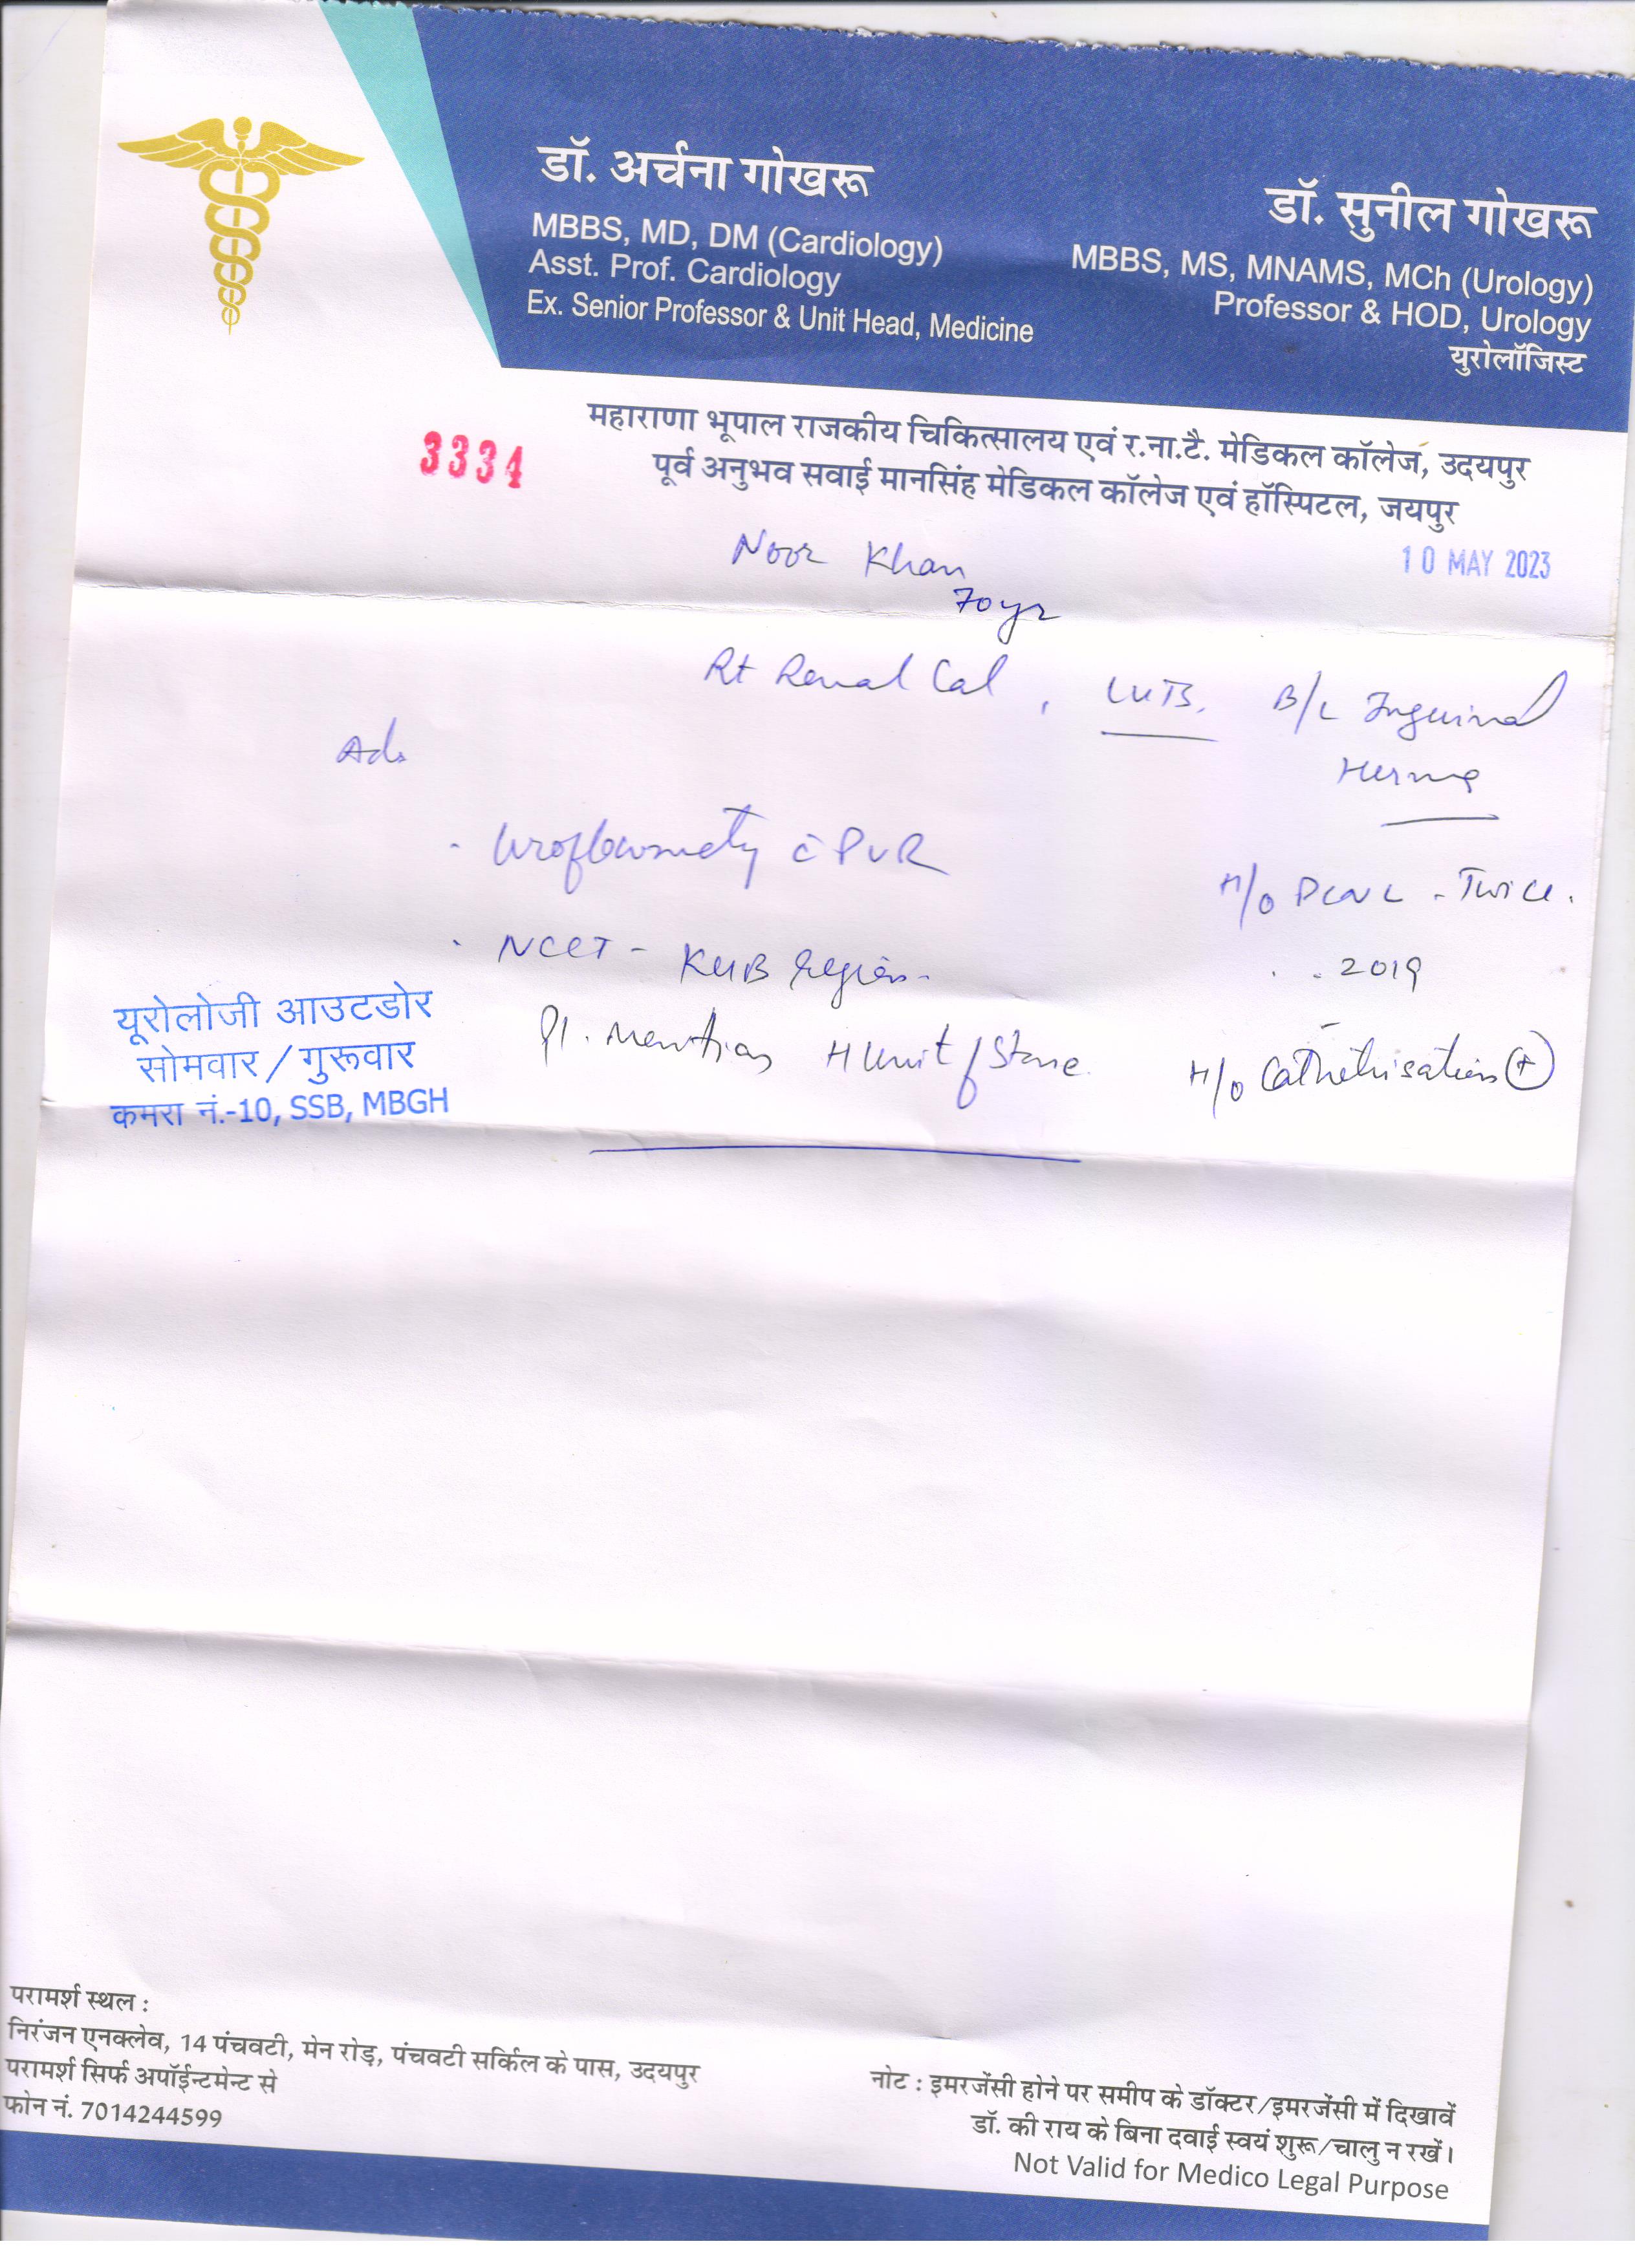 डॉ. अर्चना गोखरू
MBBS, MD, DM (Cardiology)
Asst. Prof. Cardiology
Ex. Senior Professor & Unit Head, Medicine
डॉ. सुनील गोखरू
MBBS, MS, MNAMS, MCh (Urology)
Professor & HOD, Urology
युरोलॉजिस्ट
महाराणा भूपाल राजकीय चिकित्सालय एवं र.ना.टै. मेडिकल कॉलेज, उदयपुर
पूर्व अनुभव सवाई मानसिंह मेडिकल कॉलेज एवं हॉस्पिटल, जयपुर
3334
10 MAY 2023
Noor Khan
70yr
Rt Renal Cal, LUTS. B/L Inguinal
Hernia
Adv
- Uroflowmetry c̄ PVR
H/o PCNL - Twice.
- NCCT - KUB region.
2019
Pl. Mention H Unit of Stone.
H/o Catheterisation (+)
यूरोलोजी आउटडोर
सोमवार / गुरूवार
कमरा नं.-10, SSB, MBGH
परामर्श स्थल :
निरंजन एनक्लेव, 14 पंचवटी, मेन रोड़, पंचवटी सर्किल के पास, उदयपुर
परामर्श सिर्फ अपॉईन्टमेन्ट से
फोन नं. 7014244599
नोट : इमरजेंसी होने पर समीप के डॉक्टर/इमरजेंसी में दिखावें
डॉ. की राय के बिना दवाई स्वयं शुरू/चालु न रखें।
Not Valid for Medico Legal Purpose